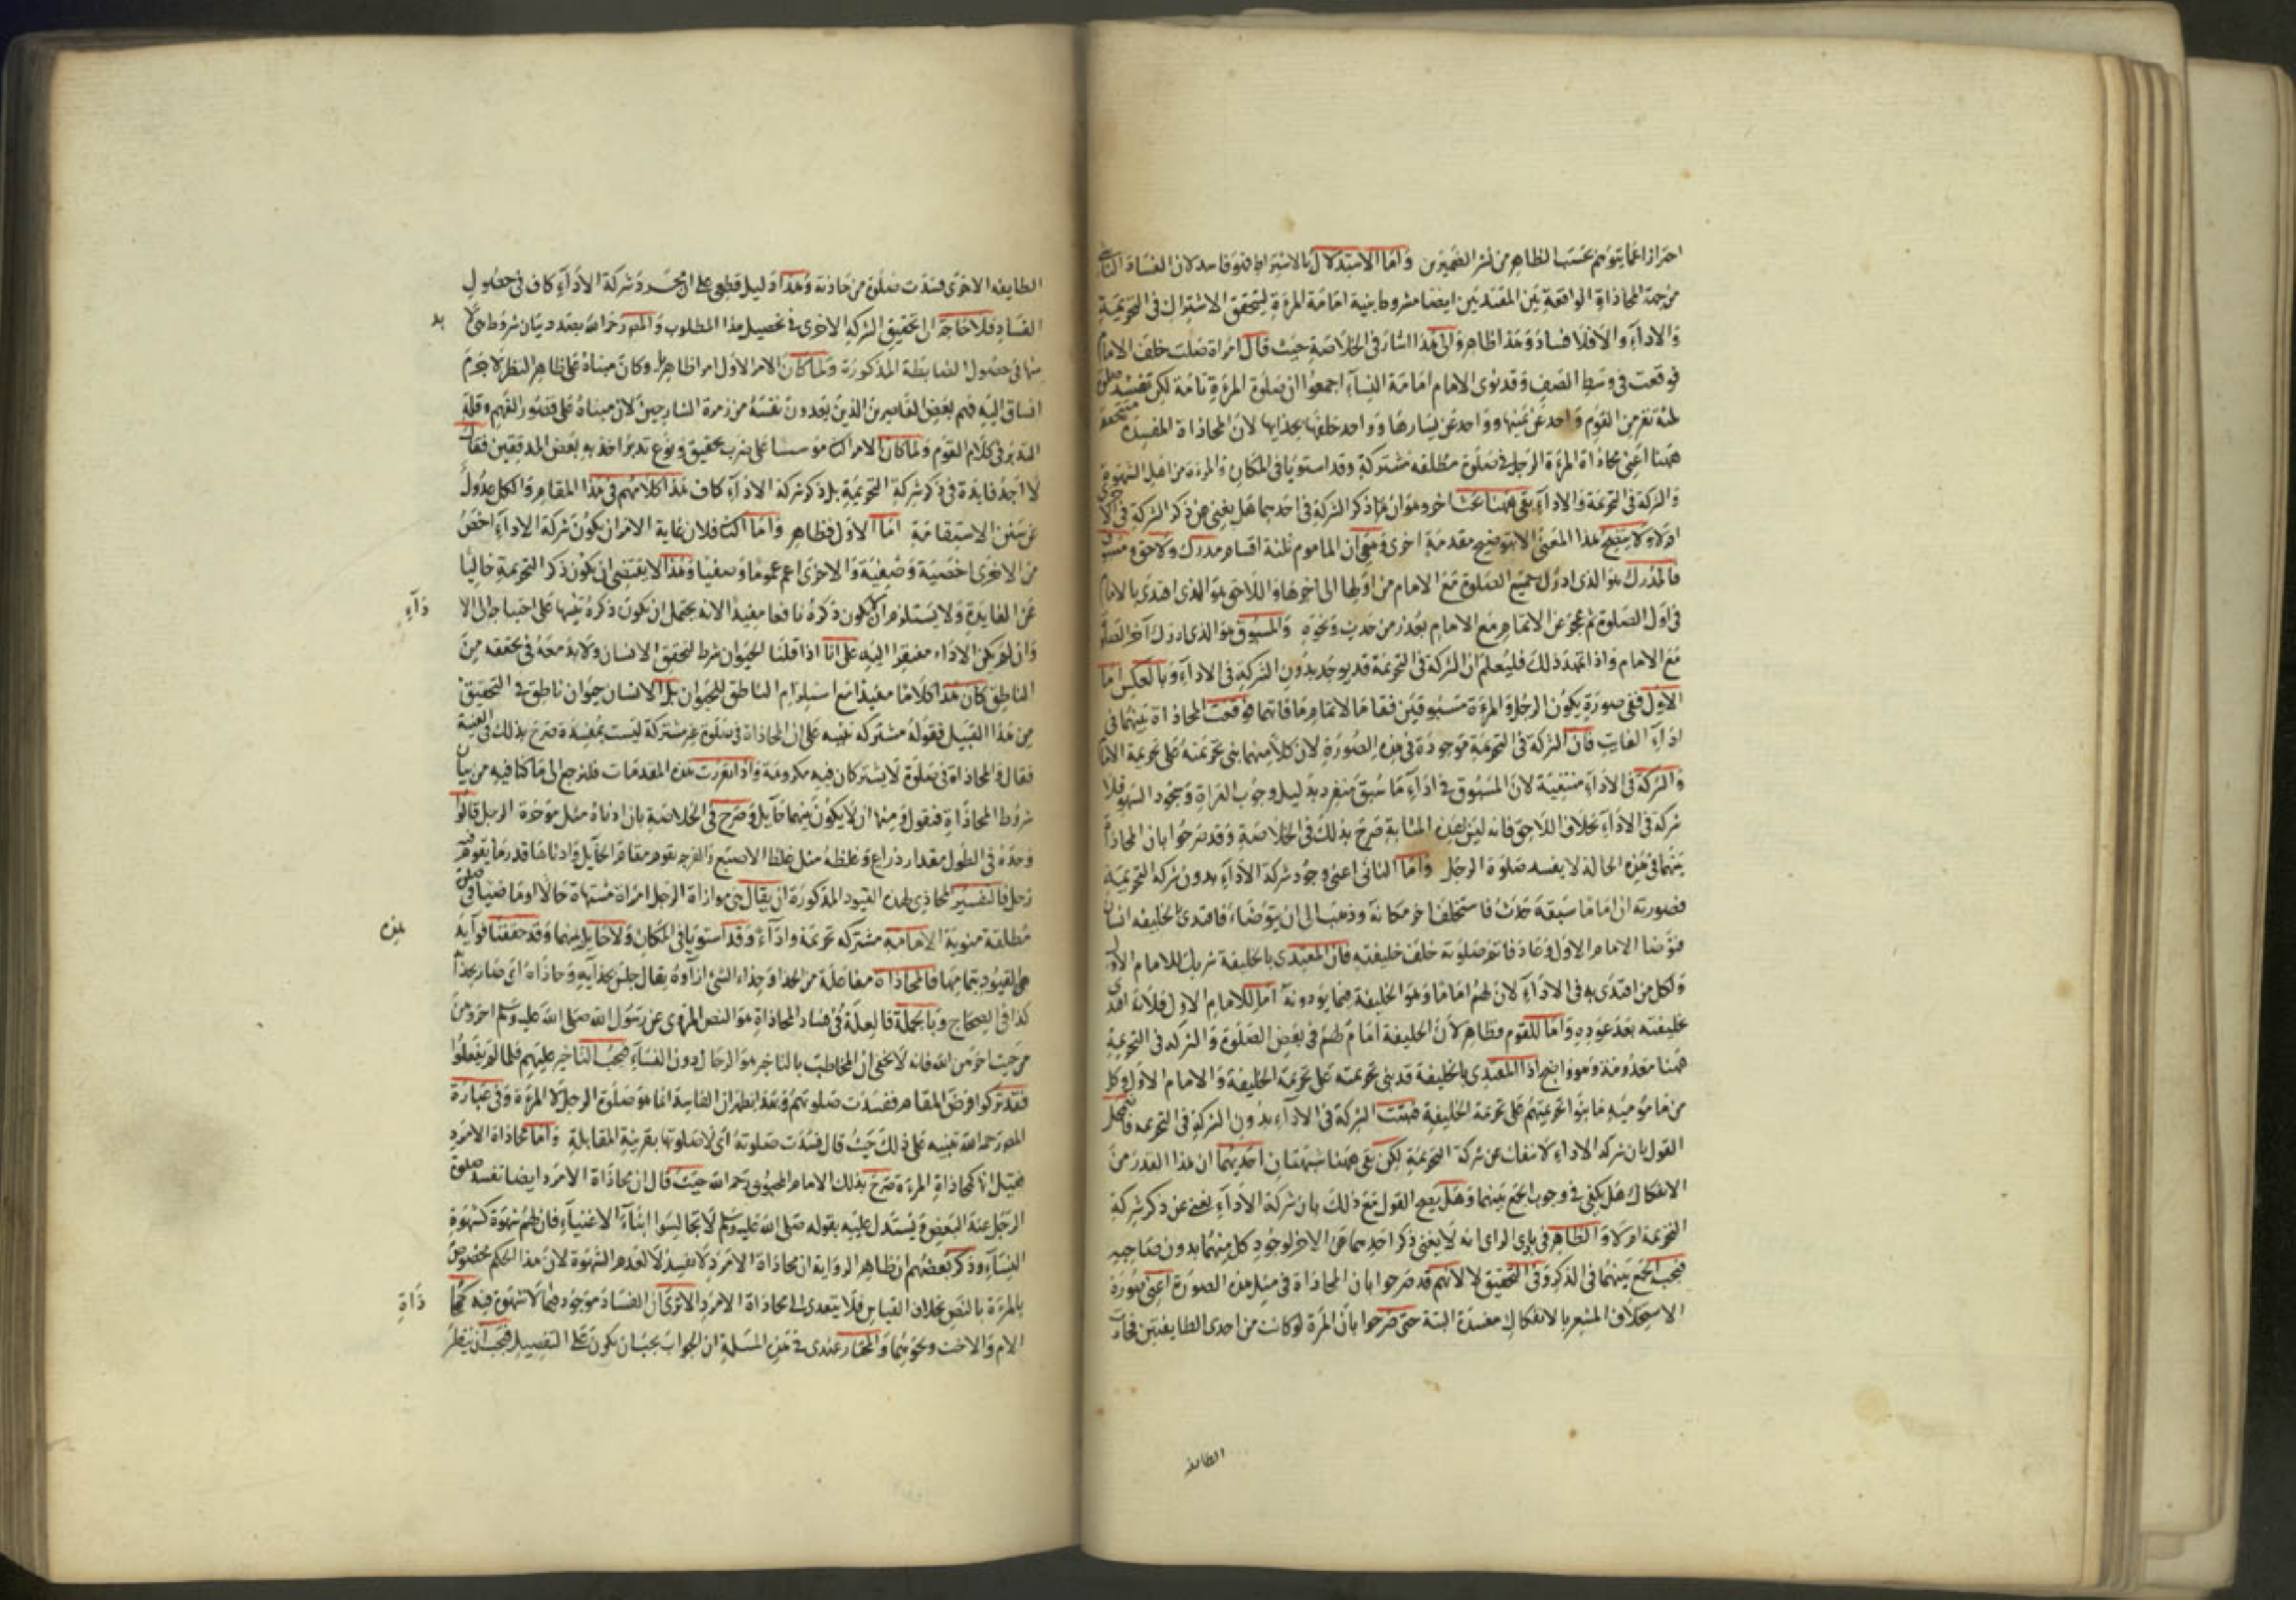 احترازا عما يتوهم بحسب الظاهر من نشر الضميرين واما الاستدلال بالاشتراط فهو فاسد لان الفساد الناشئ
من جهة المحاذاة الواقعة بين المقتديين ايضا مشروط بنية امامة المرءة ليتحقق الاشتراك في التحريمة
والاداء والا فلا فساد وهذا ظاهر والى هذا اشار في الخلاصة حيث قال امراة صلت خلف الامام
فوقعت في وسط الصف وقد نوى الامام امامة النساء اجمعوا ان صلوة المرءة تامة لكن تفسد صلوة
ثلثة نفر من القوم واحد عن يمينها وواحد عن يسارها وواحد خلفها بحذايها لان المحاذاة المفسدة متحققة
ههنا اعني محاذاة المرءة الرجل في صلوة مطلقه مشتركة وقد استويا في المكان والمرءة من اهل الشهوة
والشركة في التحريمة والاداء بقي ههنا بحث اخر وهو ان هذا ذكر الشركة في احديهما هل يغني عن ذكر الشركة في الاخرى
اولا ولا يتضح هذا المعنى الا بتوضيح مقدمة اخرى وهي ان الماموم ثلثة اقسام مدرك ولاحق ومسبوق
فالمدرك هو الذي ادرك جميع الصلوة مع الامام من اولها الى اخرها واللاحق هو الذي اقتدى بالامام
في اول الصلوة ثم عجز عن الاتمام مع الامام بعذر من حدث ونحوه والمسبوق هو الذي ادرك آخر الصلوة
مع الامام واذا تمهد ذلك فليعلم ان الشركة في التحريمة قد يوجد بدون الشركة في الاداء وبالعكس اما
الاول ففي صورة يكون الرجل والمرءة مسبوقين فقاما لاتمام ما فاتهما فوقعت المحاذاة بينهما في
اداء الفايت فان الشركة في التحريمة موجودة في هذه الصورة لان كلا منهما بنى تحريمته على تحريمة الامام
والشركة في الاداء منتفية لان المسبوق في اداء ما سبق منفرد بدليل وجوب القراة وسجود السهو فلا
شركة في الاداء بخلاف اللاحق فانه ليس بهذه المثابة صرح بذلك في الخلاصة وقد صرحوا بان المحاذاة
بينهما في هذه الحالة لا يفسد صلوة الرجل واما الثاني اعني وجود شركة الاداء بدون شركة التحريمة
فصورته ان اماما سبقه حدث فاستخلف اخر مكانه وذهب الى ان يتوضاء فاقتدى بالخليفه انسان
فتوضا الامام الاول وعاد فاتم صلوته خلف خليفته فان المقتدى بالخليفة شريك للامام الاول
ولكل من اقتدى به في الاداء لان لهم اماما وهو الخليفة فيما يؤدونه اما للامام الاول فلانه اقتدى
بخليفته بعد عوده واما للقوم فظاهر لان الخليفة امام لهم في بعض الصلوة والشركه في التحريمة
ههنا معدومة وهو واضح اذ المقتدى بالخليفة قد بنى تحريمته على تحريمة الخليفة والامام الاول وكل
من ماموميه ما بنوا تحريمتهم على تحريمة الخليفة فثبتت الشركة في الاداء بدون الشركة في التحريمه
القول بان شركة الاداء لا تنفك عن شركة التحريمة لكن بقي ههنا شبهتان احديهما ان هذا القدر من
الانفكاك هل يكفي في وجوب الجمع بينهما وهل يصح القول مع ذلك بان شركة الاداء يغني عن ذكر شركة
التحريمة اولا والظاهر في بادي الراى انه لا يغني ذكر احديهما عن الاخر لوجود كل منهما بدون صاحبه
فيجب الجمع بينهما في الذكر وفي التحقيق لا لانهم قد صرحوا بان المحاذاة في مثل هذه الصورة اعني صورة
الاستخلاف المشعر بالانفكاك مفسدة البتة حتى صرحوا بان المرءة لو كانت من احدى الطايفتين فحاذت
الطايفه
الطايفه الاخرى فسدت صلوة من حاذته وهذا دليل قطعي على ان مجرد شركة الاداء كاف في حصول
الفساد فلا حاجة الى تحقيق الشركة الاخرى في تحصيل هذا المطلوب والمصر رحمه الله بصدد بيان شروط
منها في حصول الضابطة المذكورة ولما كان الامر الاول امرا ظاهريا وكان مبناه على ظاهر النظر لا جرم
انساق اليه فهم بعض القاصرين الذين يعدون نفسه من زمرة الشارحين لان مبناه على قصور الفهم وقلة
التدبر في كلام القوم ولما كان الامر الثاني مؤسسا على ضرب تحقيق ونوع تدبر اخذ به بعض المدققين فقال
لا اجد فايدة في ذكر شركة التحريمة بل ذكر شركة الاداء كاف هذا كلامهم في هذا المقام والكل عدول
عن سنن الاستقامة اما الاول فظاهر واما الثاني فلان غاية الامر ان يكون شركة الاداء اخص
من الاخرى اخصية وضعية والاخرى اعم عموما وضعيا وهذا لا يقتضي ان يكون ذكر التحريمة خاليا
عن الفايدة ولا يستلزم ان لا يكون ذكره نافعا مفيدا لانه يحتمل ان يكون ذكره تنبيها على احتياجه الى الا
داء
وان لم يكن الاداء مفتقرا اليه على انا اذا قلنا الحيوان شرط لتحقق الانسان ولا بد معه في تحققه من
الناطق كان هذا كلاما مفيدا مع استلزام الناطق للحيوان بل الانسان حيوان ناطق في التحقيق
من هذا القبيل فقوله مشتركه تنبيه على ان المحاذاة في صلوة غير مشتركة ليست بمفسدة صرح بذلك في الغنية
فقال والمحاذاة في صلوة لا يشتركان فيه مكروهة واذا تقررت هذه المقدمات فلنرجع الى ما كنا فيه من بيان
شروط المحاذاة فنقول ومنها ان لا يكون بينهما حايل وصرح في الخلاصة بان ادناه مثل مؤخرة الرحل قالوا
وحده في الطول مقدار ذراع وغلظه مثل غلظ الاصبع والفرجه يقوم مقام الحايل وادناها قدر ما يقوم فيه
رجل فالتفسير المحاذى لهذه القيود المذكورة ان يقال هي موازاة الرجل امراة مشتهاة حالا او ماضيا في صلوة
مطلقة منوية الامامة مشتركه تحريمة واداء وقد استويا في المكان ولا حايل بينهما وقد حققنا فوايد
هذه
القيود بتمامها فالمحاذاة مفاعلة من الحذا وحذاء الشئ ازاؤه يقال جلس بحذايه وحاذاه اى صار بحذا
كذا في الصحاح وبالجملة فالعلة في فساد المحاذاة هو النص المروى عن رسول الله صلى الله عليه وسلم اخروهن
من حيث اخرهن الله فانه لا يخفى ان المخاطب بالتاخير هو الرجال دون النساء فيجب التاخير عليهم فلما لم يفعلوا
فقد تركوا فرض المقام ففسدت صلوتهم وبهذا يظهر ان الفاسد انما هو صلوة الرجل لا المرءة وفي عبارة
المصر رحمه الله تنبيه على ذلك حيث قال فسدت صلوته اى لا صلوتها بقرينة المقابلة واما محاذاة الامرد
فقيل انها كمحاذاة المرءة صرح بذلك الامام المحبوبى رحمه الله حيث قال ان محاذاة الامرد ايضا تفسد صلوة
الرجل عند البعض ويستدل عليه بقوله صلى الله عليه وسلم لا تجالسوا ابناء الاغنياء فان لهم شهوة كشهوة
النساء وذكر بعضهم ان ظاهر الرواية ان محاذاة الامرد لا تفسد لا لعدم الشهوة لان هذا الحكم مخصوص
بالمرءة بالنص بخلاف القياس فلا يتعدى الى محاذاة الامرد الا ترى ان الفساد موجود فيما لا شهوة فيه كمحا
ذاة
الام والاخت ونحوهما والمختار عندى في هذه المسئلة ان الجواب يجب ان يكون على التفصيل فيجب ان ينظر